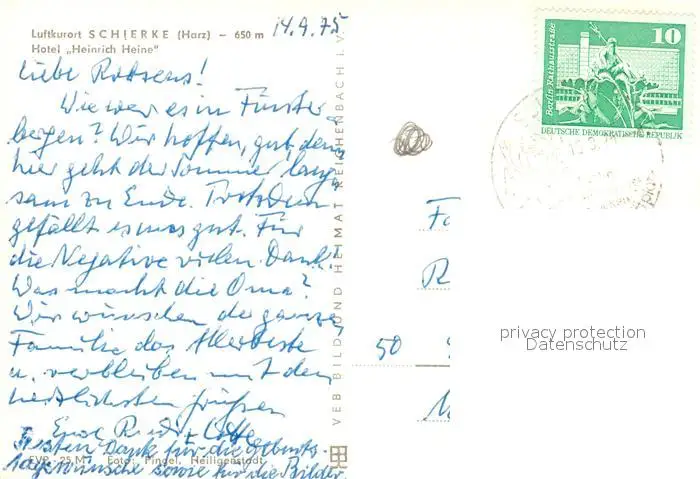 Luftkurort SCHIERKE (Harz) – 650 m
Hotel „Heinrich Heine"
14.9.75
Liebe
Wie war es in Fünster
bergen? Wir hoffen, gut, denn
hier geht der Sommer lang
sam zu Ende. Trotzdem
gefällt es uns gut. Für
die Negative vielen Dank!
Was macht die Oma?
Wir wünschen der ganzen
Familie das Allerbeste
u. verbleiben mit den
herzlichsten Grüßen
Eure
Besten Dank für die Geburts-
tagswünsche sowie für die Bilder.
EVP -.25 M Foto: Pindel, Heiligenstadt
VEB BILD UND HEIMAT REICHENBACH i. V.
Berlin Rathausstraße
10
DEUTSCHE DEMOKRATISCHE REPUBLIK
Fa
R
50
privacy protection
Datenschutz